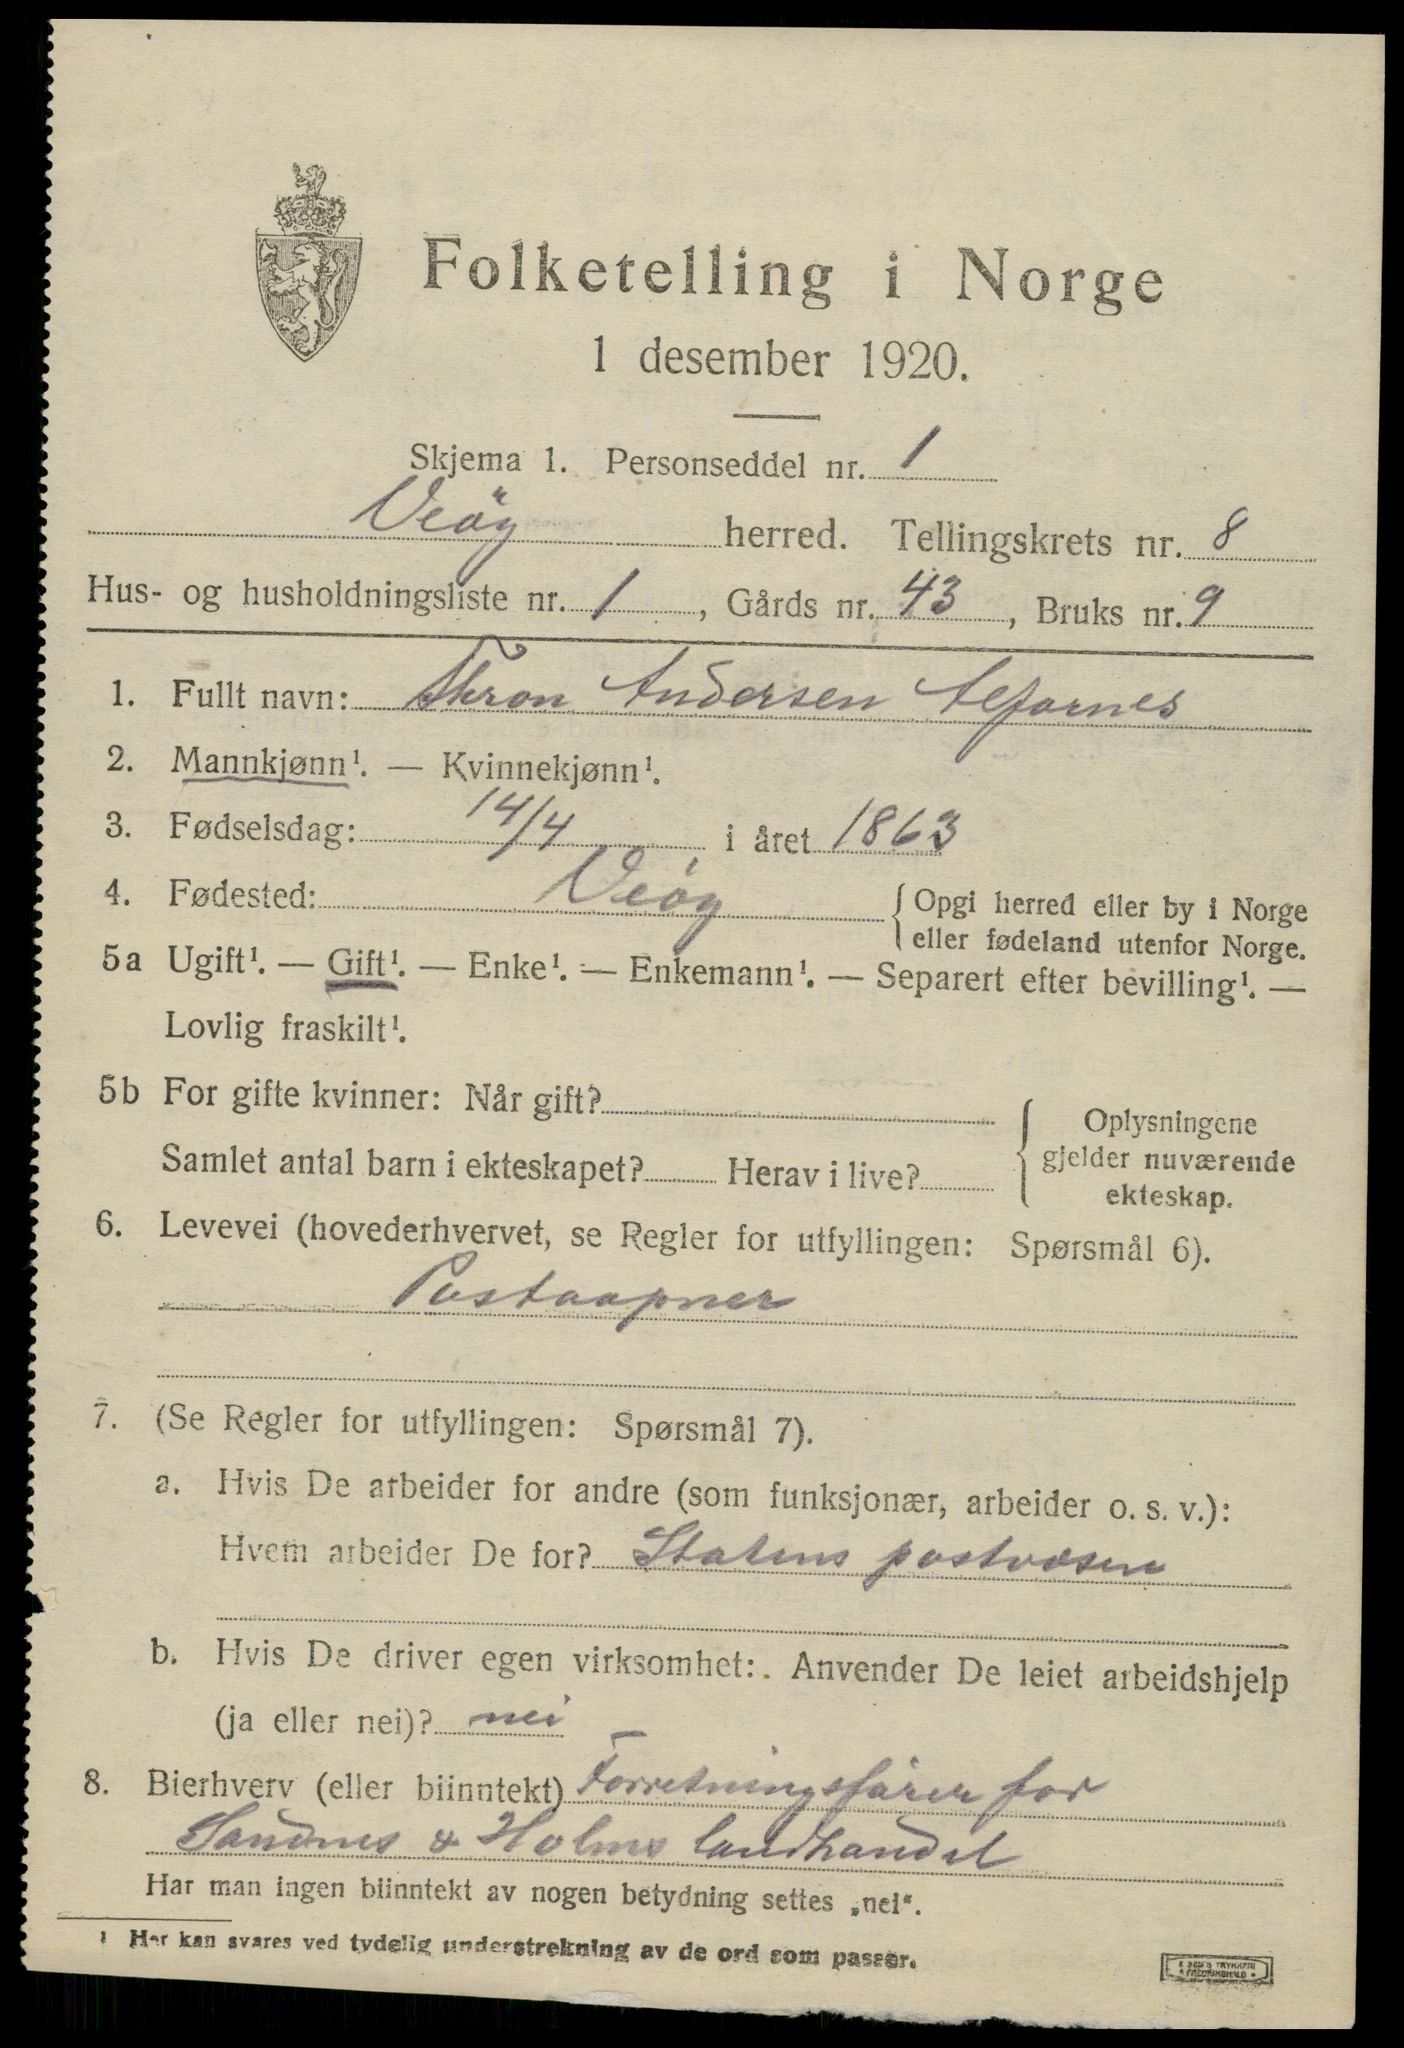 Folketelling i Norge
1 desember 1920.
Skjema 1. Personseddel nr. 1
Veöy herred. Tellingskrets nr. 8
Hus- og husholdningsliste nr. 1, Gårds nr. 43, Bruks nr. 9
1. Fullt navn: Thron Andersen Alfarnes
2. Mannkjønn¹. — Kvinnekjønn¹.
3. Fødselsdag: 14/4 i året 1863
4. Fødested: Veöy { Opgi herred eller by i Norge
eller fødeland utenfor Norge.
5a Ugift¹. — Gift¹. — Enke¹. — Enkemann¹. — Separert efter bevilling¹. —
Lovlig fraskilt¹.
5b For gifte kvinner: Når gift?
Samlet antal barn i ekteskapet? Herav i live?
{ Oplysningene
gjelder nuværende
ekteskap.
6. Levevei (hovederhvervet, se Regler for utfyllingen: Spørsmål 6).
Postaapner
7. (Se Regler for utfyllingen: Spørsmål 7).
a. Hvis De arbeider for andre (som funksjonær, arbeider o. s. v.):
Hvem arbeider De for? Statens postvæsen
b. Hvis De driver egen virksomhet: Anvender De leiet arbeidshjelp
(ja eller nei)? nei
8. Bierhverv (eller biinntekt) Forretningsfører for
Sandnes & Holms landhandel
Har man ingen biinntekt av nogen betydning settes „nei“.
¹ Her kan svares ved tydelig understrekning av de ord som passer.